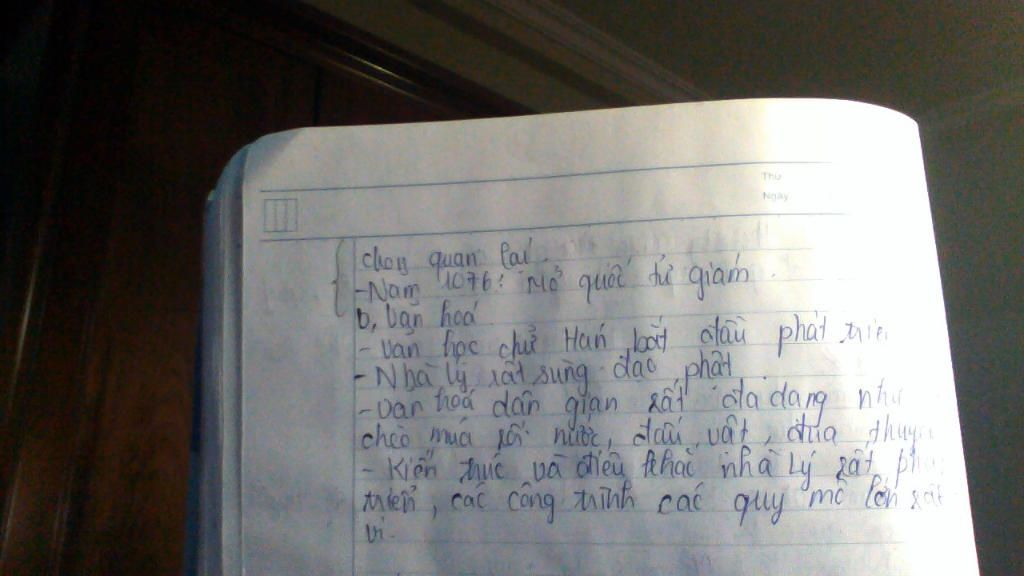 Thứ
Ngày
chọn quan lại.
- Năm 1076: Mở quốc tử giám.
b, Văn hoá
- Văn học chữ Hán bắt đầu phát triển
- Nhà Lý rất sùng đạo phật
- Văn hoá dân gian rất đa dạng như
chèo múa rối nước, đấu vật, đua thuyền
- Kiến thúc và điêu khắc nhà Lý rất phát
triển, các công trình các quy mô lớn rất
vi.